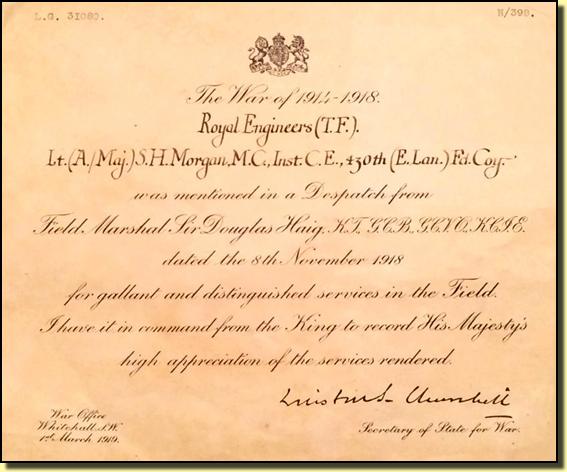 L.G. 31080. N/398.
The War of 1914-1918.
Royal Engineers (T.F.).
Lt. (A/Maj.) S.H. Morgan, M.C., Inst. C.E., 430th (E. Lan.) Fd. Coy.
was mentioned in a Despatch from
Field Marshal Sir Douglas Haig, K.T., G.C.B., G.C.V.O., K.C.I.E.
dated the 8th November 1918
for gallant and distinguished services in the Field.
I have it in command from the King to record His Majesty's
high appreciation of the services rendered.
Winston S Churchill
War Office
Whitehall, S.W.
1st March 1919.
Secretary of State for War.